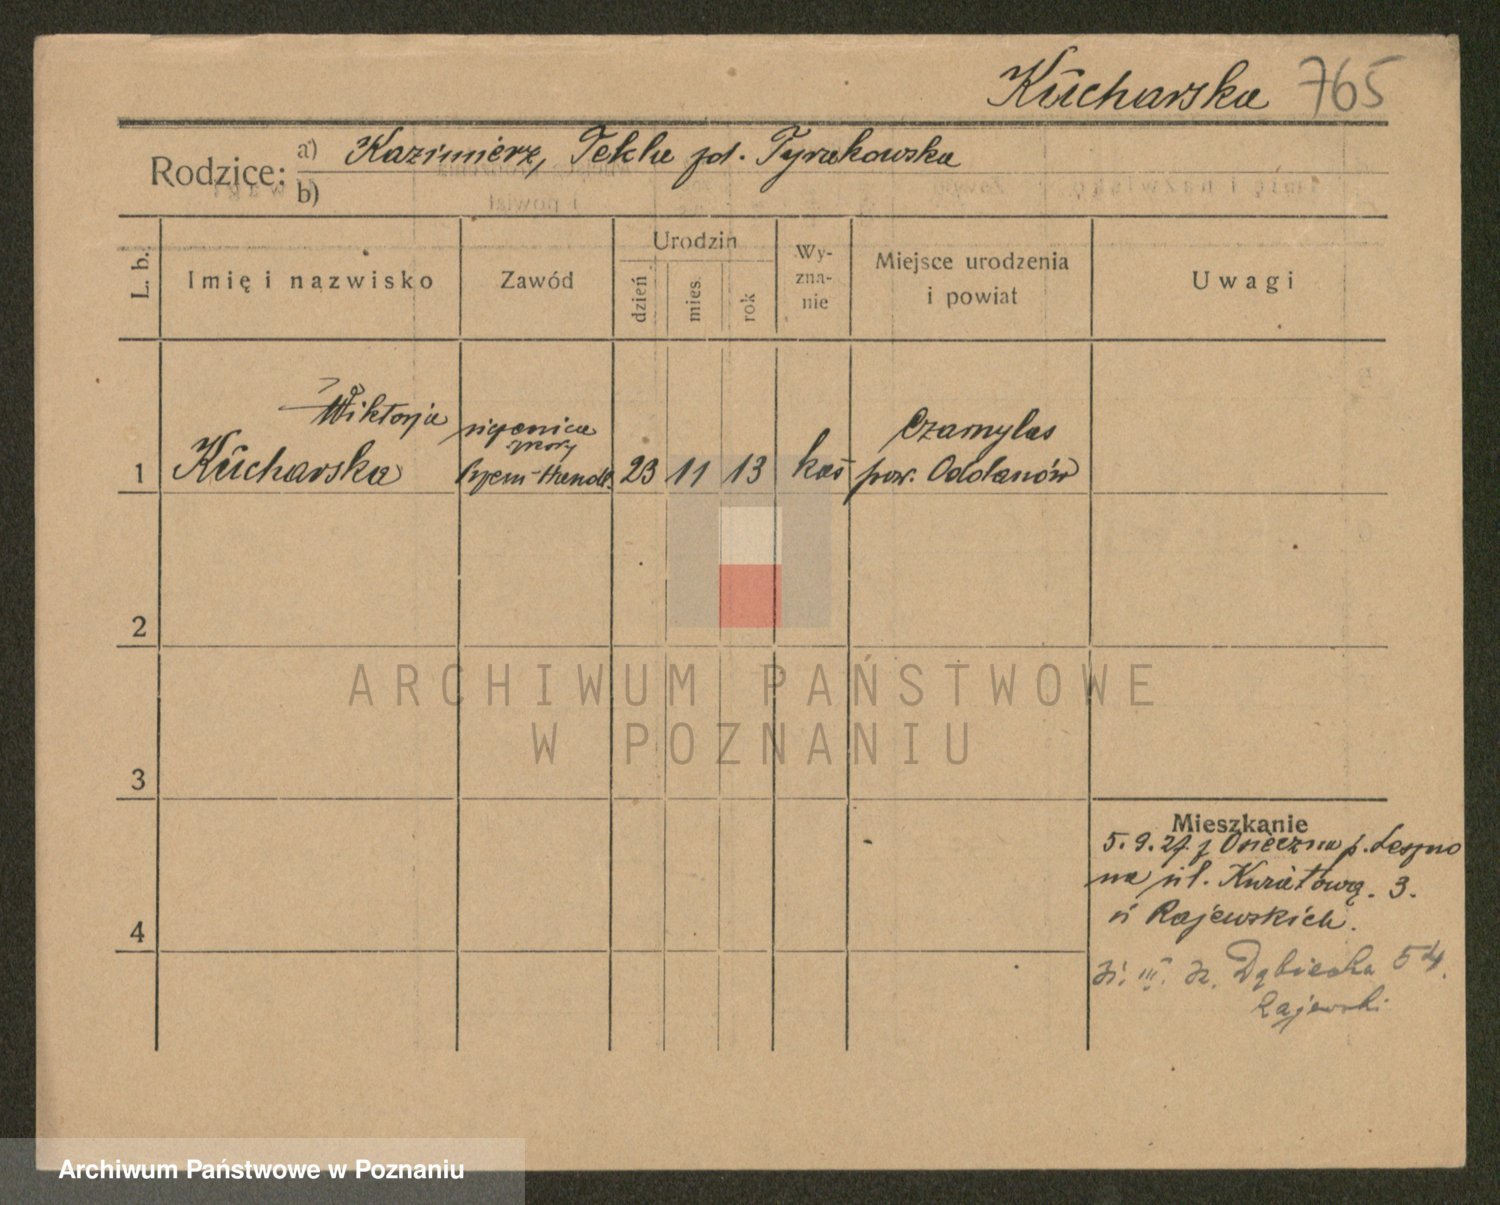 Kucharska 765
Rodzice: a) Kazimierz, Tekla zd. Tyrakowska
b)
L. b. Imię i nazwisko Zawód Urodzin dzień mies. rok Wyznanie Miejsce urodzenia i powiat Uwagi
Wiktorja uczenica Czarnylas
szkoły
1 Kucharska Przem-Handl. 23 11 13 kat pow. Odolanów
2
3
4
Mieszkanie
5. 9. 27. z Osieczna p. Leszno
na ul. Kwiatową. 3.
u Rajewskich.
Dąbiecka 54.
Rajewski
ARCHIWUM PAŃSTWOWE
W POZNANIU
Archiwum Państwowe w Poznaniu